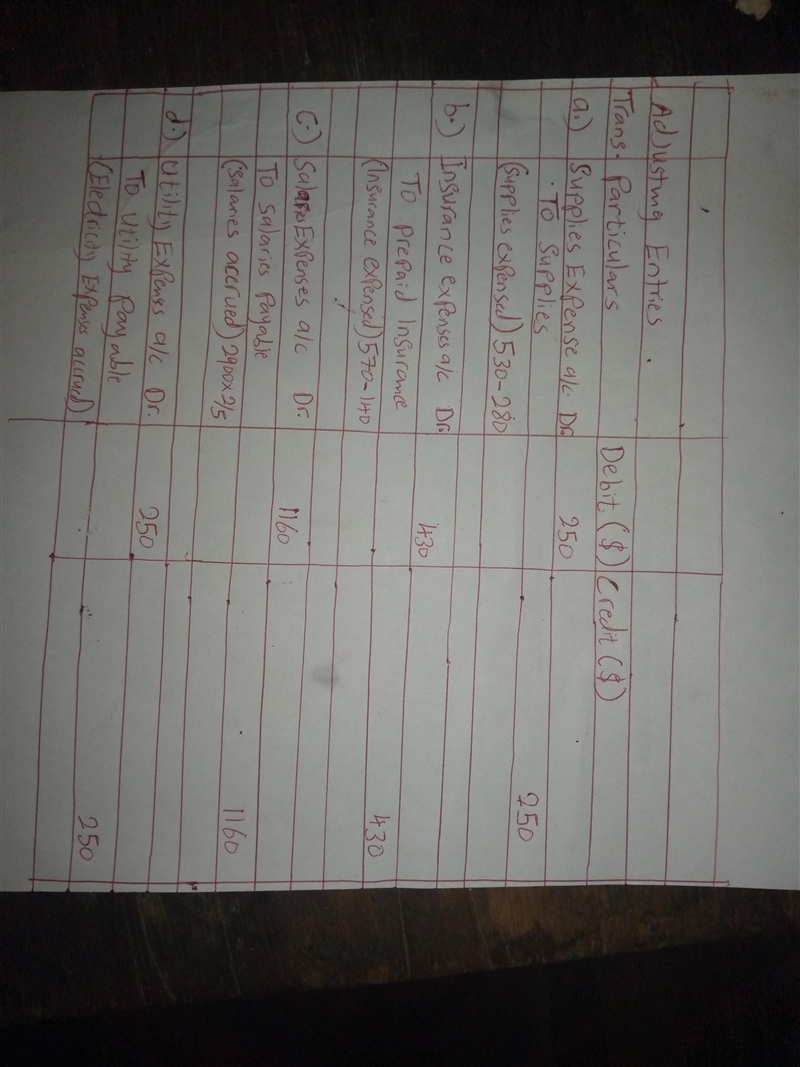 Adjusting Entries
Trans. Particulars Debit ($) Credit ($)
a.) Supplies Expense a/c Dr. 250
To Supplies 250
(Supplies expensed) 530-280
b.) Insurance expenses a/c Dr. 430
To prepaid Insurance 430
(Insurance expensed) 570-140
c.) Salaries Expenses a/c Dr. 1160
To Salaries Payable 1160
(Salaries accrued) 2900x2/5
d.) Utility Expenses a/c Dr. 250
To Utility Payable 250
(Electricity Expense accrued)